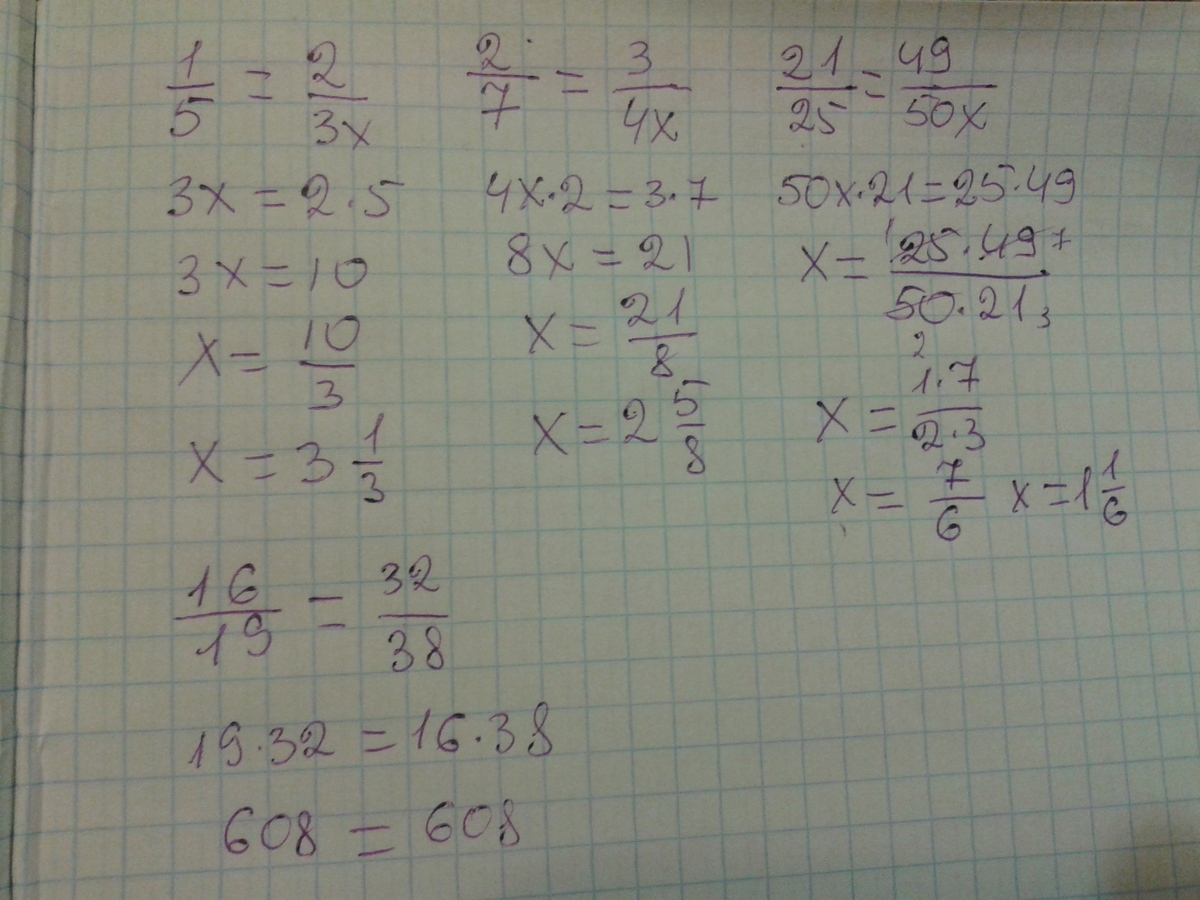 1/5 = 2/3x
3x = 2·5
3x = 10
x = 10/3
x = 3 1/3
2/7 = 3/4x
4x·2 = 3·7
8x = 21
x = 21/8
x = 2 5/8
21/25 = 49/50x
50x·21 = 25·49
x = 25·49/50·21
1 7
2 3
x = 1·7/2·3
x = 7/6 x = 1 1/6
16/19 = 32/38
19·32 = 16·38
608 = 608